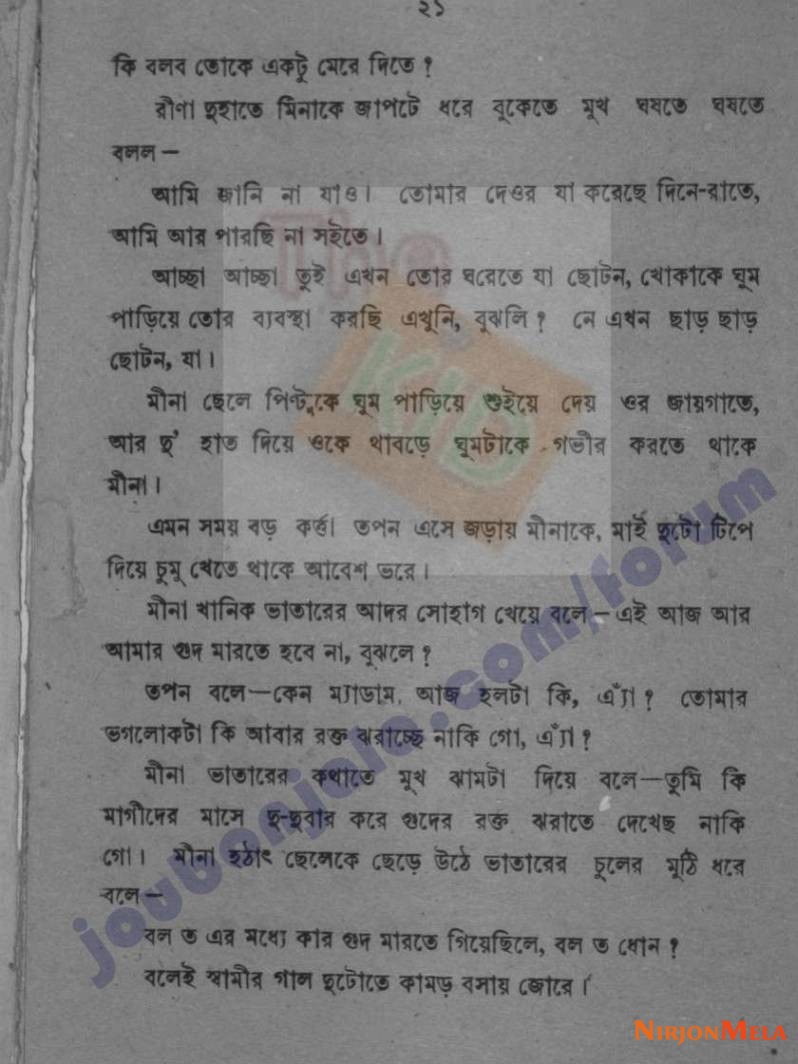 ২১
কি বলব তোকে একটু মেরে দিতে ?
রীণা দুহাতে মিনাকে জাপটে ধরে বুকেতে মুখ ঘষতে ঘষতে
বলল —
আমি জানি না যাও। তোমার দেওর যা করেছে দিনে-রাতে,
আমি আর পারছি না সইতে।
আচ্ছা আচ্ছা তুই এখন তোর ঘরেতে যা ছোটন, খোকাকে ঘুম
পাড়িয়ে তোর ব্যবস্থা করছি এখুনি, বুঝলি ? নে এখন ছাড় ছাড়
ছোটন, যা।
মীনা ছেলে পিন্টুকে ঘুম পাড়িয়ে শুইয়ে দেয় ওর জায়গাতে,
আর দু' হাত দিয়ে ওকে থাবড়ে ঘুমটাকে গভীর করতে থাকে
মীনা।
এমন সময় বড় কর্ত্তা তপন এসে জড়ায় মীনাকে, মাই দুটো টিপে
দিয়ে চুমু খেতে থাকে আবেশ ভরে।
মীনা খানিক ভাতারের আদর সোহাগ খেয়ে বলে — এই আজ আর
আমার গুদ মারতে হবে না, বুঝলে ?
তপন বলে — কেন ম্যাডাম, আজ হলটা কি, এঁ্যা ? তোমার
ভগলোকটা কি আবার রক্ত ঝরাচ্ছে নাকি গো, এঁ্যা ?
মীনা ভাতারের কথাতে মুখ ঝামটা দিয়ে বলে — তুমি কি
মাগীদের মাসে দু-দুবার করে গুদের রক্ত ঝরাতে দেখেছ নাকি
গো। মীনা হঠাৎ ছেলেকে ছেড়ে উঠে ভাতারের চুলের মুঠি ধরে
বলে —
বল ত এর মধ্যে কার গুদ মারতে গিয়েছিলে, বল ত ধোন ?
বলেই স্বামীর গাল দুটোতে কামড় বসায় জোরে।
The
KiD
joubonjala.com/forum
NIRJONMELA